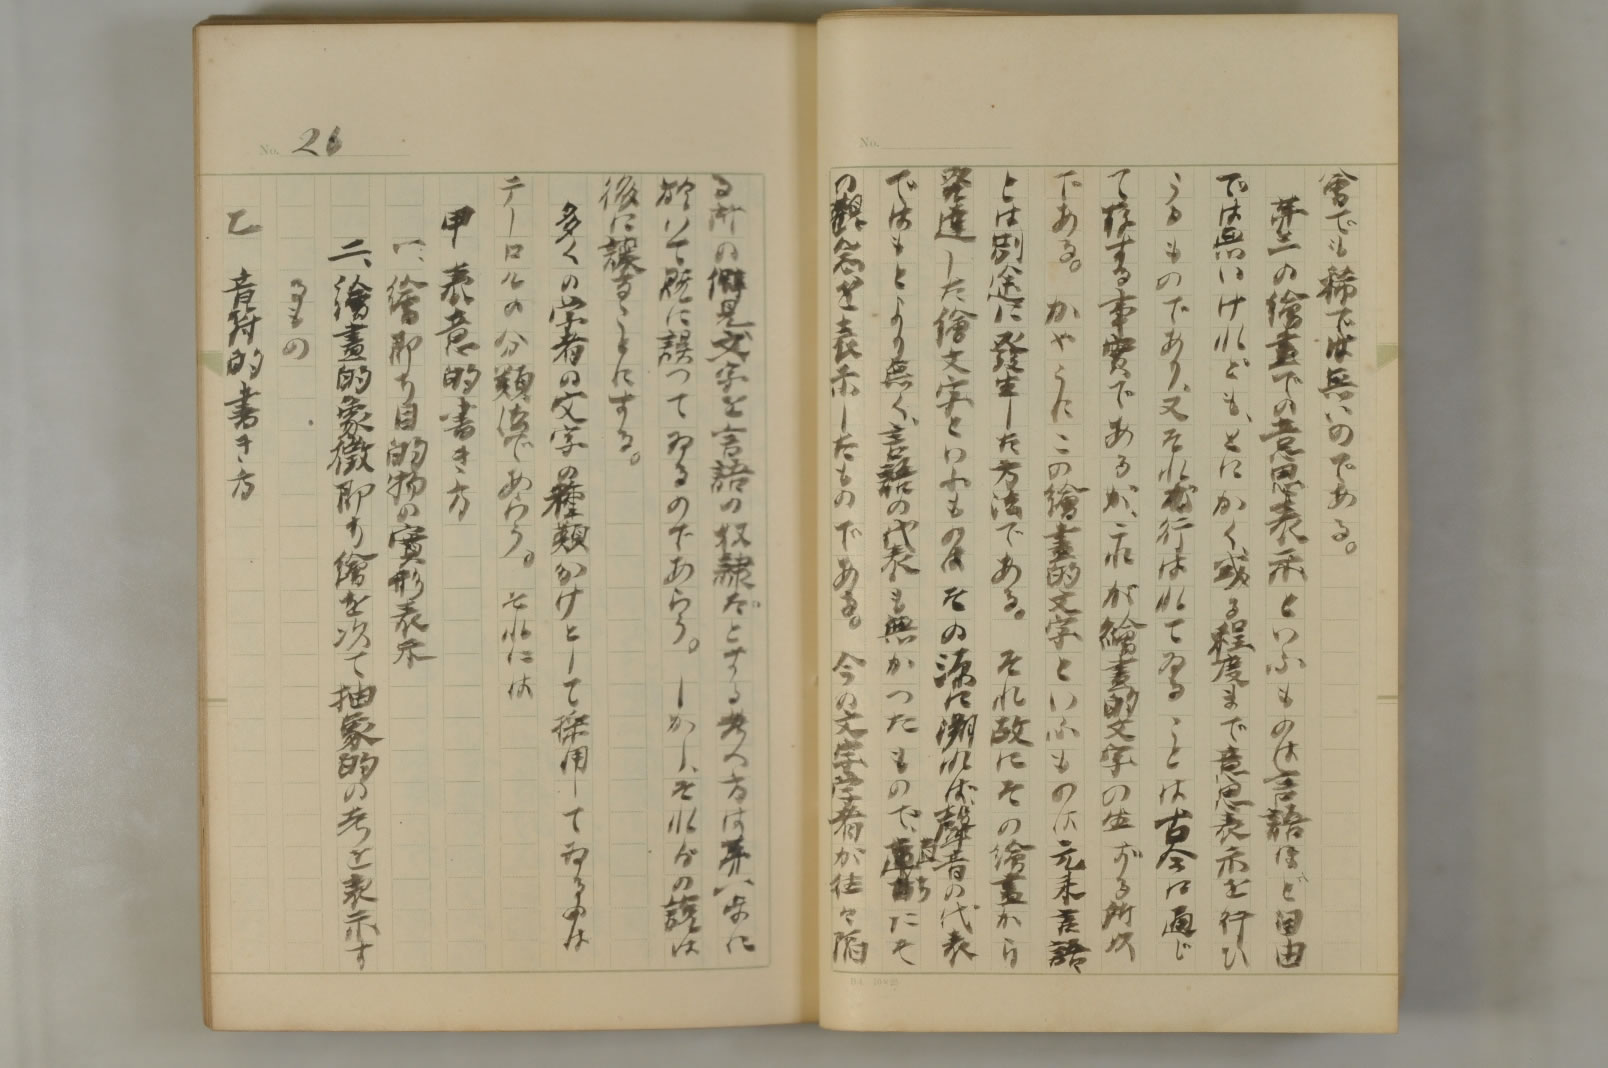 No.
會でも稀では無いのである。
第二の繪畫での意思表示といふものは言語ほど自由
では無いけれども、とにかく或る程度まで意思表示を行ひ
うるものであり、又それが行はれてゐることは古今に通じ
て存する事實であるが、これが繪畫的文字の生ずる所以
である。かやうにこの繪畫的文字といふものは元来言語
とは別途に發生した方法である。それ故にその繪畫から
發達した繪文字といふものはその源に溯れば聲音の代表
ではもとより無く、言語の代表も無かつたもので、直ちにそ
の觀念を表示したものである。今の文字学者が往々陥
D4 20×25
No. 26
る所の僻見文字を言語の奴隷だとする考へ方は第一歩に
於いて既に誤つてゐるのであらう。しかし、それらの説は
後に譲ることにする。
多くの学者の文字の種類わけとして採用してゐるのは
テーロルの分類法であらう。それには
甲 表意的書き方
一、繪即ち目的物の實形表示
二、繪畫的象徴即ち繪を以て抽象的の考を表示す
るもの
乙 音符的書き方